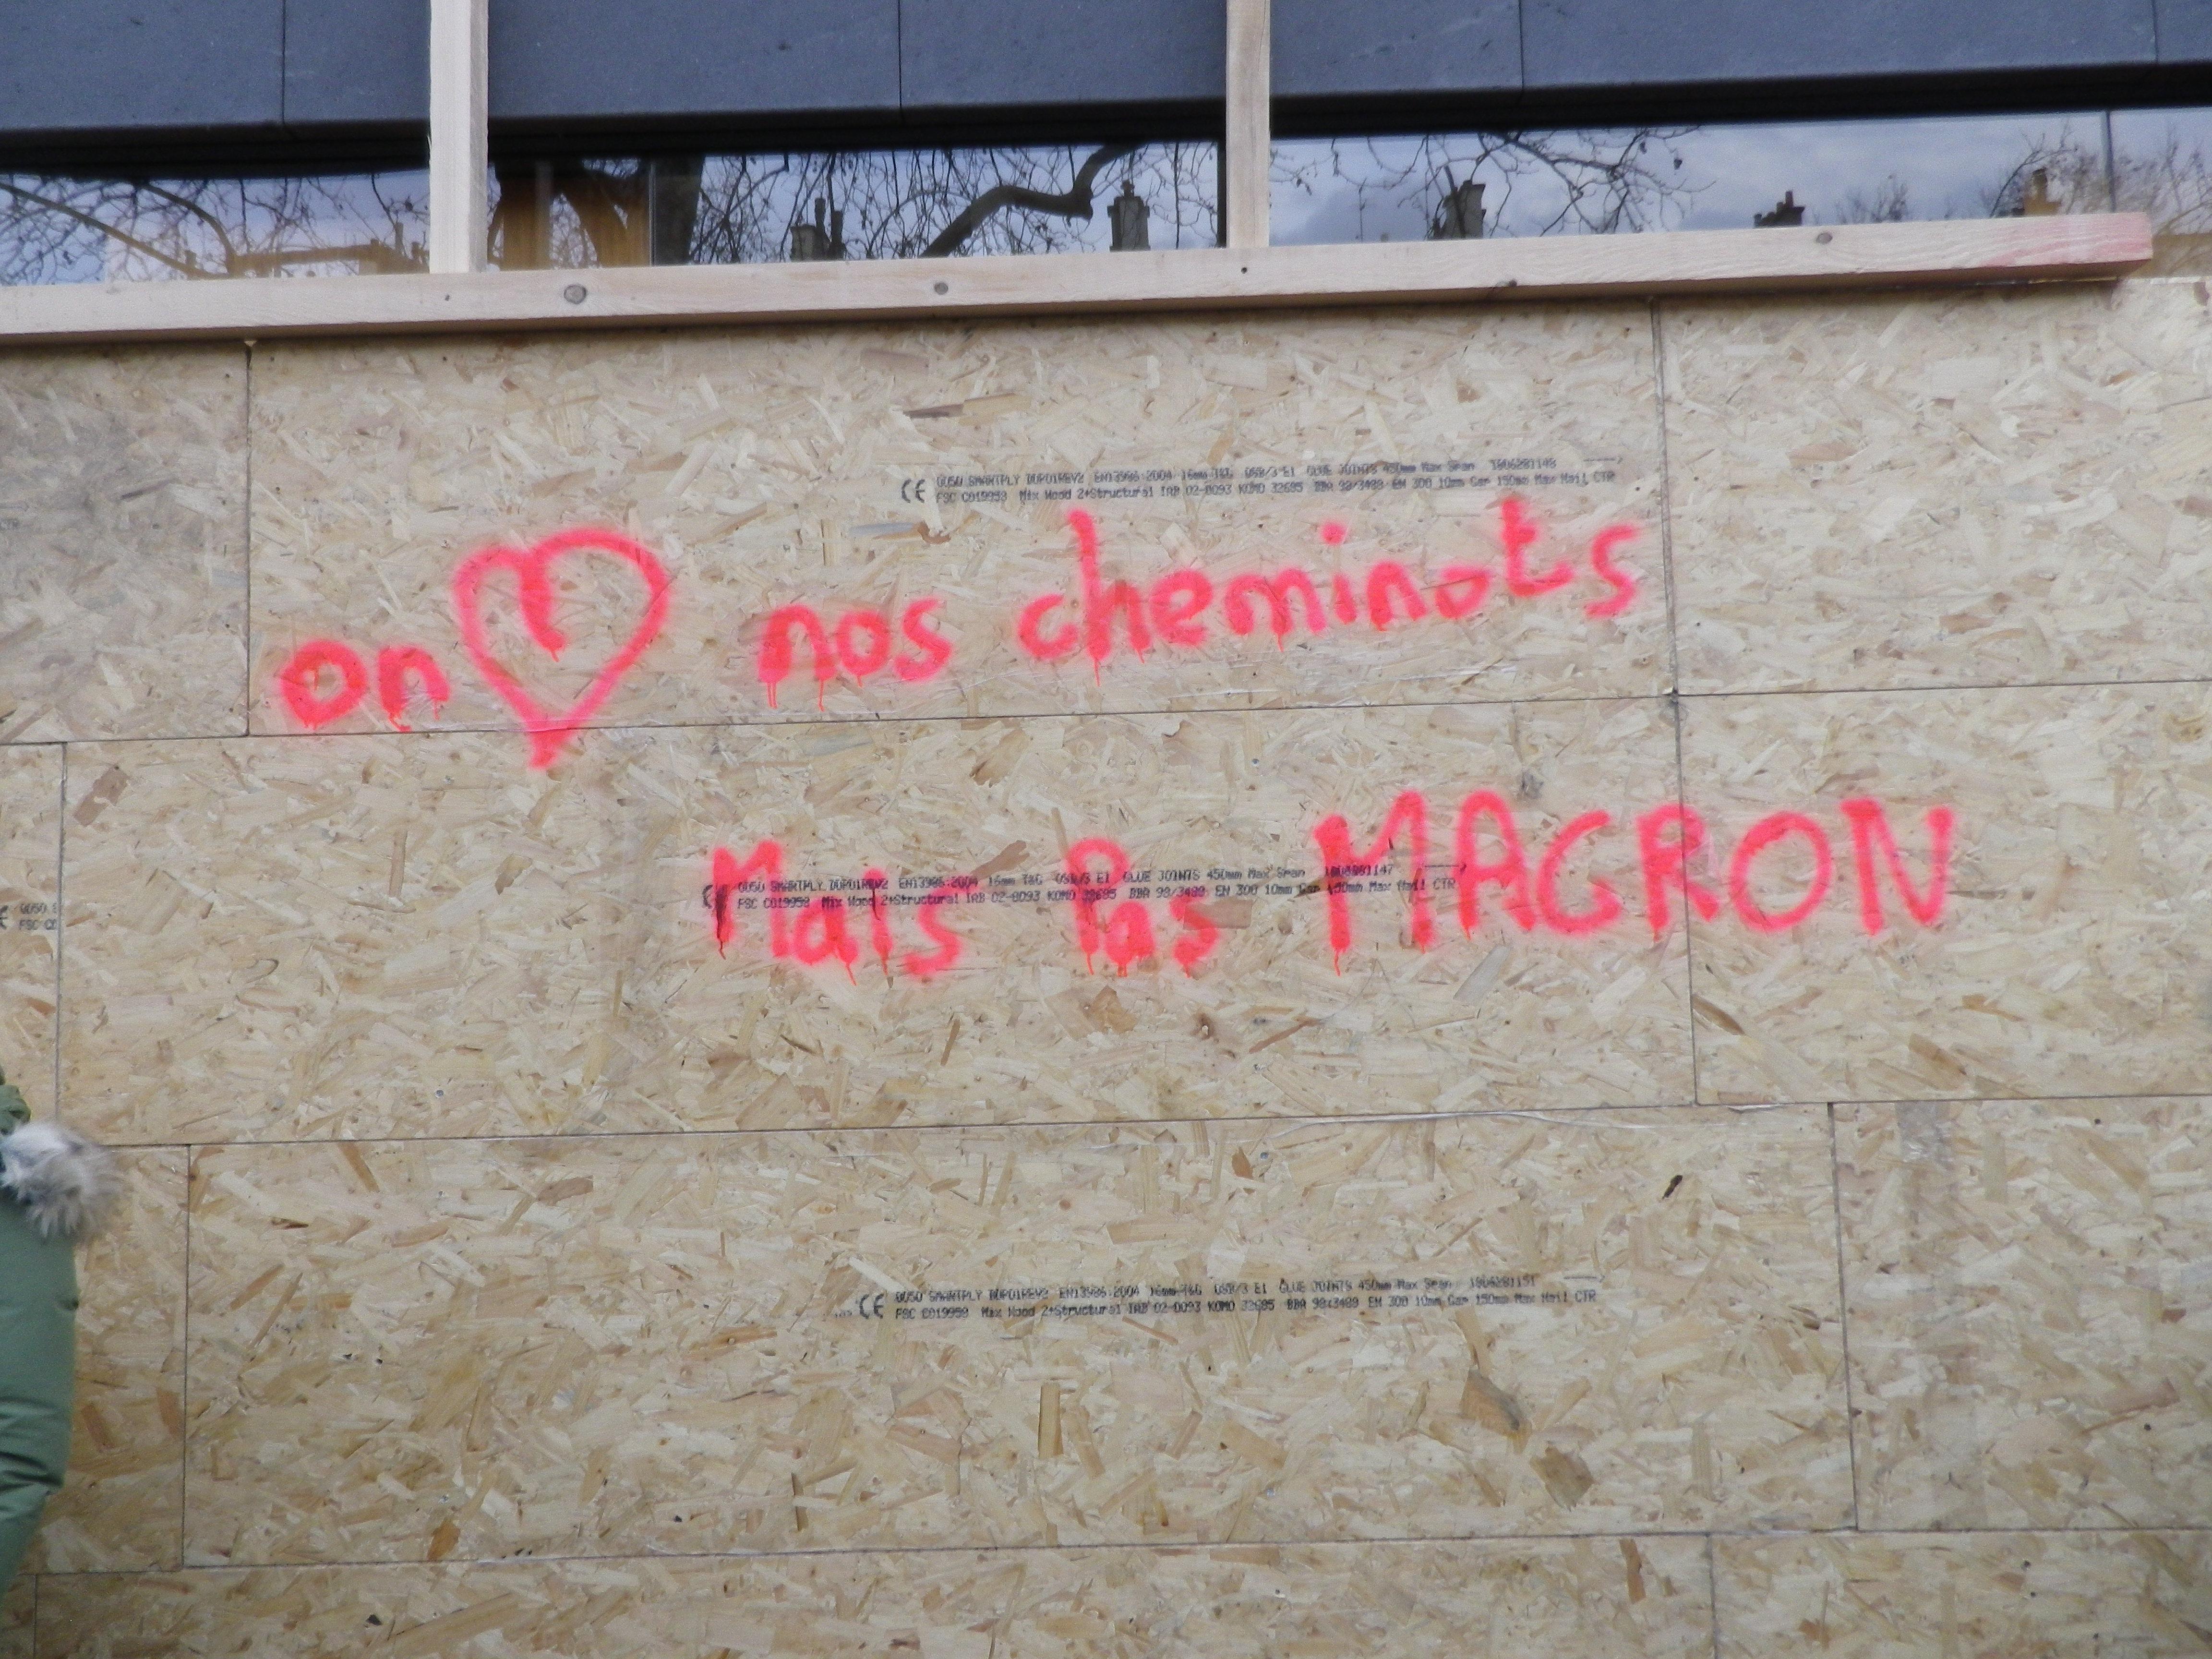 on ♡ nos cheminots
Mais Pas MACRON
0050 SMARTPLY DOP01REV2 EN13986:2004 16mm T&G OSB/3 E1 GLUE JOINTS 450mm Max Span
CE FSC C019950 Mix Wood 2+Structural IAB 02-0093 KOMO 32695 BBA 98/3489 EN 300 10mm Gap 150mm Max Nail CTR
0050 SMARTPLY DOP01REV2 EN13986:2004 16mm T&G OSB/3 E1 GLUE JOINTS 450mm Max Span
FSC C019950 Mix Wood 2+Structural IAB 02-0093 KOMO 32695 BBA 98/3489 EN 300 10mm Gap 150mm Max Nail CTR
0050 SMARTPLY DOP01REV2 EN13986:2004 16mm T&G OSB/3 E1 GLUE JOINTS 450mm Max Span
CE FSC C019950 Mix Wood 2+Structural IAB 02-0093 KOMO 32695 BBA 98/3489 EN 300 10mm Gap 150mm Max Nail CTR